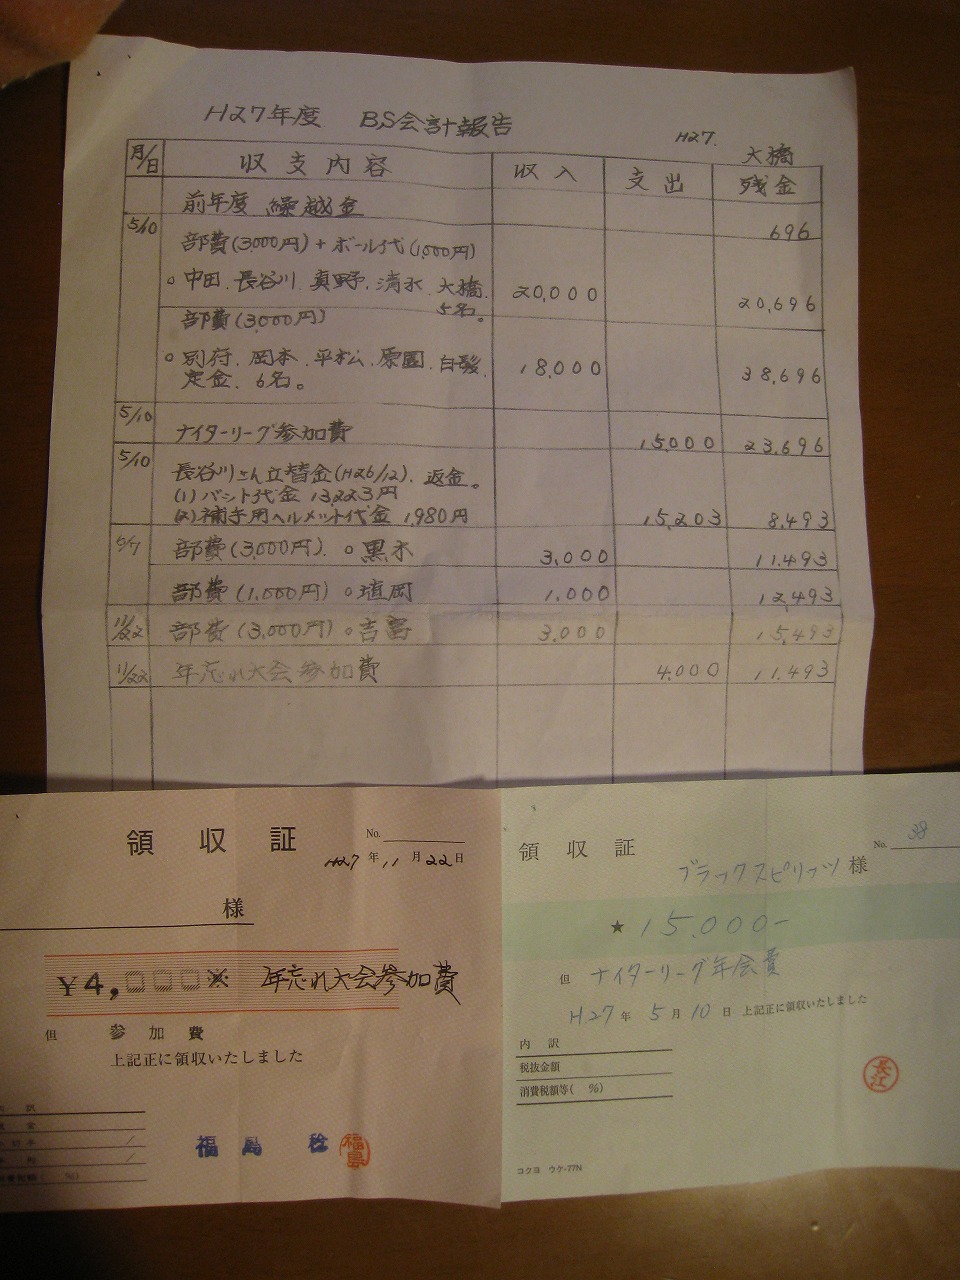 H27年度 B,S会計報告
H27. 大橋
月/日 収支内容 収入 支出 残金
前年度 繰越金 696
5/10 部費(3,000円)+ボール代(1,000円)
○中田.長谷川.真野.清水.大橋. 5名。 20,000 20,696
部費(3,000円)
○別府.岡本.平松.原園.白髪. 18,000 38,696
定金.6名。
5/10 ナイターリーグ参加費 15,000 23,696
5/10 長谷川さん立替金(H26/12).返金。
(1)バット代金 13,223円
(2)補手用ヘルメット代金 1,980円 15,203 8,493
部費(3,000円).○黒木 3,000 11,493
部費(1,000円)○埴岡 1,000 12,493
11/22 部費(3,000円)○吉富 3,000 15,493
11/22 年忘れ大会参加費 4,000 11,493
領収証 No.
H27年11月22日
様
¥4,000※ 年忘れ大会参加費
但 参加費
上記正に領収いたしました
福島 稔 福島
領収証 No. 38
ブラックスピリッツ様
★ 15,000-
但 ナイターリーグ年会費
H27年5月10日 上記正に領収いたしました
内訳
税抜金額
消費税額等( %)
長江
コクヨ ウケ-77N